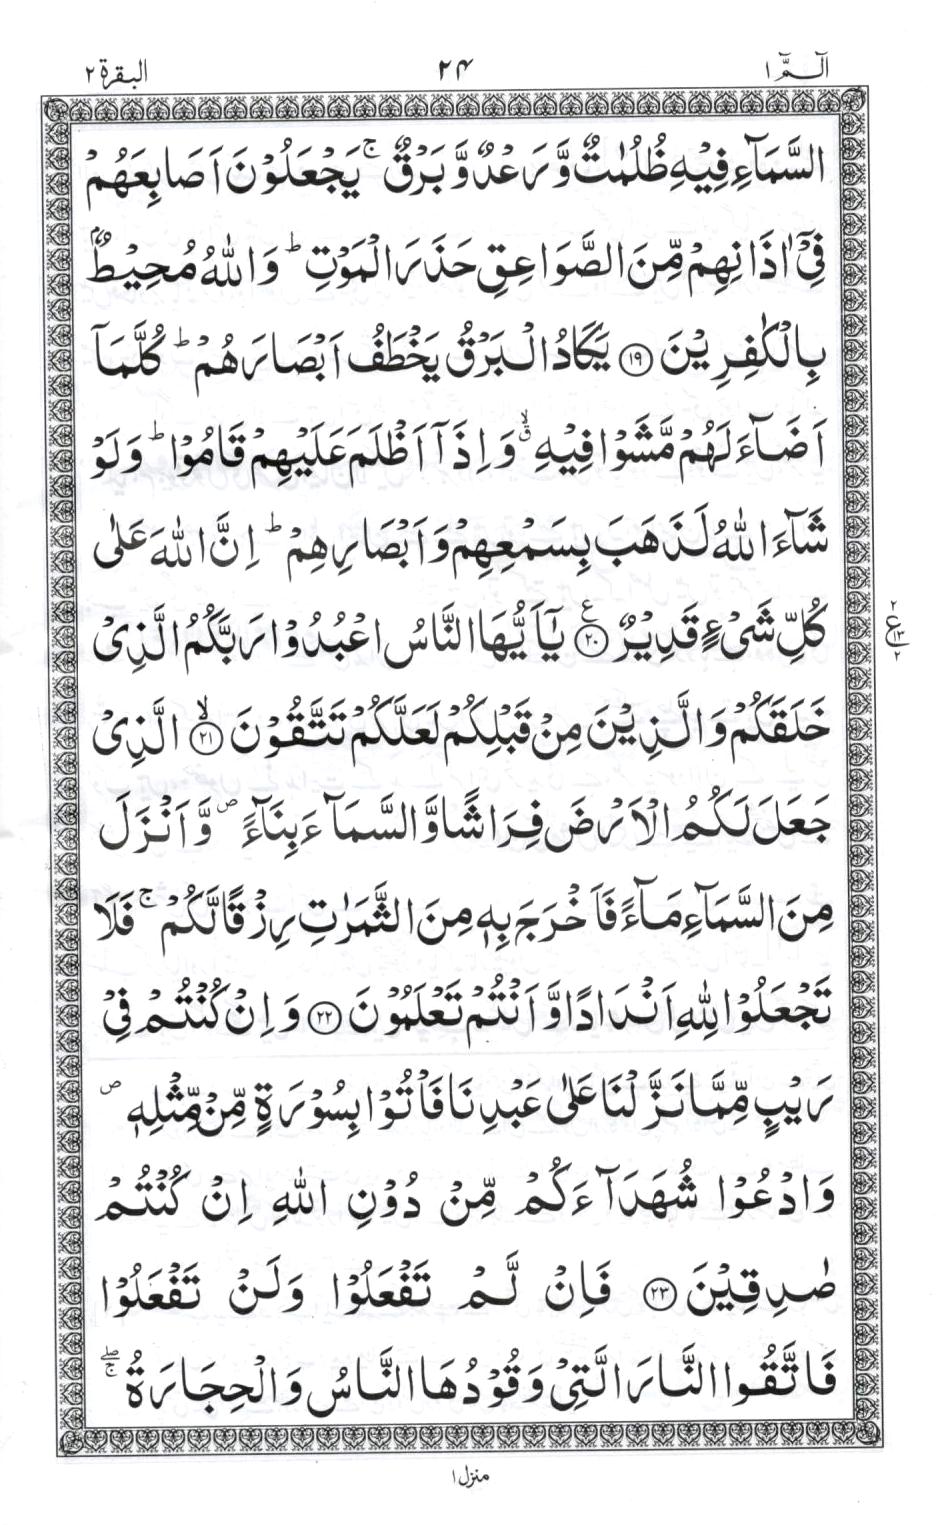 الٓـمّٓ ١
٢٤
البقرة ٢
السَّمَآءِ فِيْهِ ظُلُمٰتٌ وَّرَعْدٌ وَّبَرْقٌ ۚ يَجْعَلُوْنَ اَصَابِعَهُمْ
فِيْۤ اٰذَانِهِمْ مِّنَ الصَّوَاعِقِ حَذَرَ الْمَوْتِ ؕ وَاللّٰهُ مُحِيْطٌۢ
بِالْكٰفِرِيْنَ ۝۱۹ يَكَادُ الْبَرْقُ يَخْطَفُ اَبْصَارَهُمْ ؕ كُلَّمَاۤ
اَضَآءَ لَهُمْ مَّشَوْا فِيْهِ ۙۗ وَاِذَاۤ اَظْلَمَ عَلَيْهِمْ قَامُوْا ؕ وَلَوْ
شَآءَ اللّٰهُ لَذَهَبَ بِسَمْعِهِمْ وَاَبْصَارِهِمْ ؕ اِنَّ اللّٰهَ عَلٰى
كُلِّ شَیْءٍ قَدِيْرٌ ۝۲۰ ع يٰۤاَيُّهَا النَّاسُ اعْبُدُوْا رَبَّكُمُ الَّذِیْ
٢
ع ١٣
٢
خَلَقَكُمْ وَالَّذِيْنَ مِنْ قَبْلِكُمْ لَعَلَّكُمْ تَتَّقُوْنَ ۝۲۱ ۙ الَّذِیْ
جَعَلَ لَكُمُ الْاَرْضَ فِرَاشًا وَّالسَّمَآءَ بِنَآءً ص وَّاَنْزَلَ
مِنَ السَّمَآءِ مَآءً فَاَخْرَجَ بِهٖ مِنَ الثَّمَرٰتِ رِزْقًا لَّكُمْ ۚ فَلَا
تَجْعَلُوْا لِلّٰهِ اَنْدَادًا وَّاَنْتُمْ تَعْلَمُوْنَ ۝۲۲ وَاِنْ كُنْتُمْ فِیْ
رَيْبٍ مِّمَّا نَزَّلْنَا عَلٰى عَبْدِنَا فَاْتُوْا بِسُوْرَةٍ مِّنْ مِّثْلِهٖ ص
وَادْعُوْا شُهَدَآءَكُمْ مِّنْ دُوْنِ اللّٰهِ اِنْ كُنْتُمْ
صٰدِقِيْنَ ۝۲۳ فَاِنْ لَّمْ تَفْعَلُوْا وَلَنْ تَفْعَلُوْا
فَاتَّقُوا النَّارَ الَّتِیْ وَقُوْدُهَا النَّاسُ وَالْحِجَارَةُ ۖۚ
منزل ١